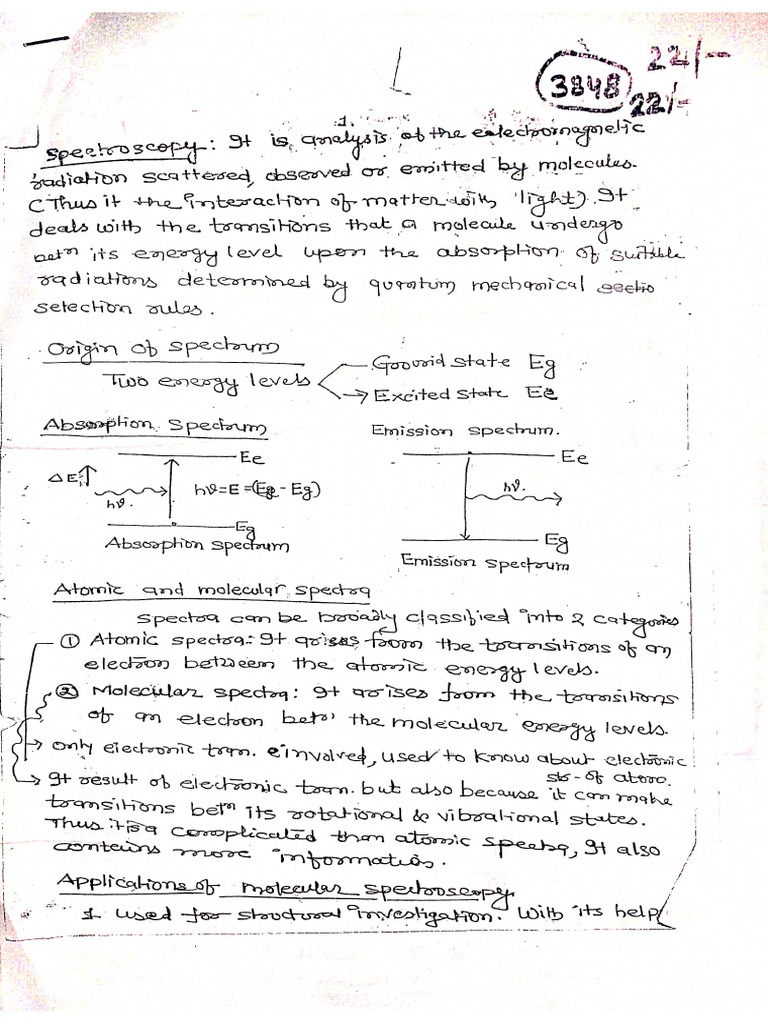 22/-
3848
22/-
1.
Spectroscopy: It is analysis of the eelectromagnetic
radiation scattered, observed or emitted by molecules.
(Thus it the interaction of matter with 'light). It
deals with the transitions that a molecule undergo
betn its energy level upon the absorption of suitable
radiations determined by quantum mechanical
selection rules.
Origin of spectrum
Two energy levels
Ground state Eg
Excited State Ee
Absorption Spectrum
Emission spectrum.
Ee
ΔE
hϑ.
hϑ=E=(Ee - Eg)
Eg
Absorption spectrum
Ee
hϑ.
Eg
Emission Spectrum
Atomic and molecular spectra
spectra can be broadly classified into 2 categories
① Atomic spectra: It arises from the transitions of an
electron between the atomic energy levels.
② Molecular spectra: It arises from the transitions
of an electron betn the molecular energy levels.
only electronic tran. involved, used to know about electronic
str- of atom.
It result of electronic tran. but also because it can make
transitions betn its rotational & vibrational states.
Thus it is a complicated than atomic spectra, It also
contains more information.
Applications of molecular spectroscopy.
1 used for structural investigation. With its help